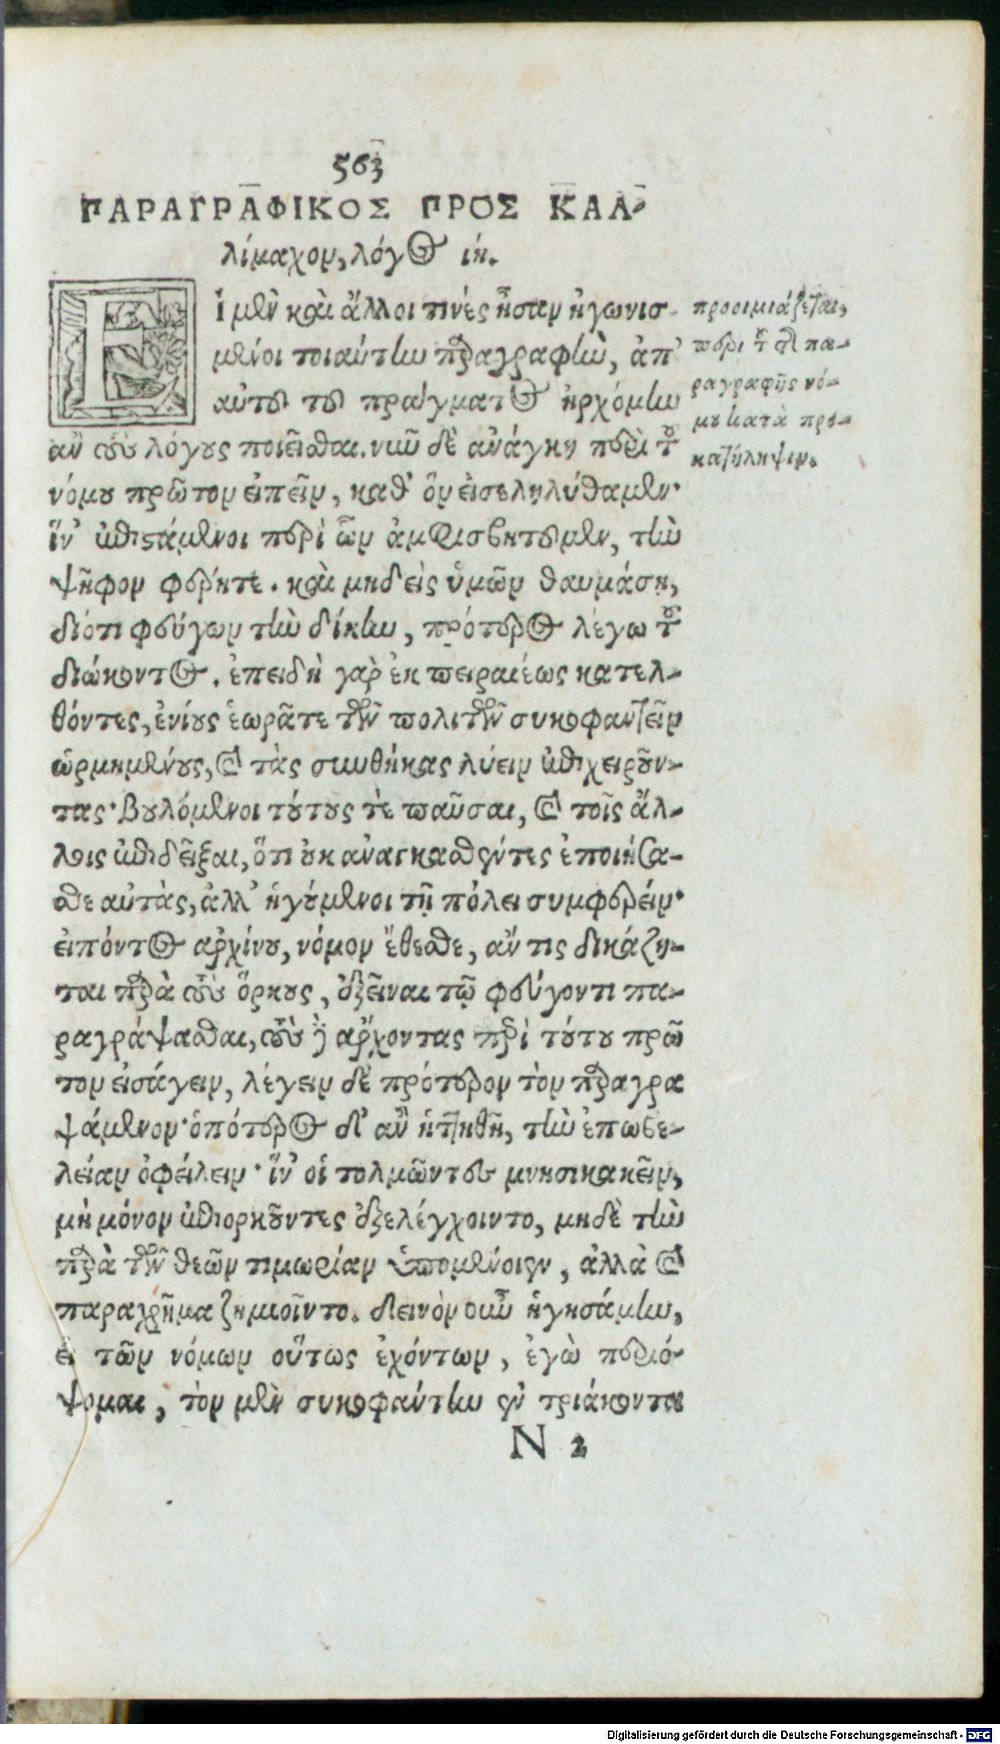 563
ΠΑΡΑΓΡΑΦΙΚΟΣ ΠΡΟΣ ΚΑΛ-
λίμαχον, λόγος ιη.
Εἰ μὲν καὶ ἄλλοι τινὲς ἦσαν ἠγωνισ-
μένοι τοιαύτην παραγραφὴν, ἀπ’
αὐτοῦ τοῦ πράγματος ἠρχόμην
ἂν τοὺς λόγους ποιεῖσθαι. νῦν δὲ ἀνάγκη περὶ τοῦ
νόμου πρῶτον εἰπεῖν, καθ’ ὃν εἰσεληλύθαμεν·
ἵν’ ἐπιστάμενοι περὶ ὧν ἀμφισβητοῦμεν, τὴν
ψῆφον φέρητε. καὶ μηδεὶς ὑμῶν θαυμάσῃ,
διότι φεύγων τὴν δίκην, πρότερος λέγω τοῦ
διώκοντος. ἐπειδὴ γὰρ ἐκ πειραιέως κατελ-
θόντες, ἐνίους ἑωρᾶτε τῶν πολιτῶν συκοφαντεῖν
ὡρμημένους, καὶ τὰς συνθήκας λύειν ἐπιχειροῦν-
τας· βουλόμενοι τούτους τε παῦσαι, καὶ τοῖς ἄλ-
λοις ἐπιδεῖξαι, ὅτι οὐκ ἀναγκασθέντες ἐποιήσα-
σθε αὐτὰς, ἀλλ’ ἡγούμενοι τῇ πόλει συμφέρειν·
εἰπόντος ἀρχίνου, νόμον ἔθεσθε, ἄν τις δικάζη-
ται παρὰ τοὺς ὅρκους, ἐξεῖναι τῷ φεύγοντι πα-
ραγράψασθαι, τοὺς δὲ ἄρχοντας περὶ τούτου πρῶ
τον εἰσάγειν, λέγειν δὲ πρότερον τὸν παραγρα
ψάμενον· ὁπότερος δ’ ἂν ἡττηθῇ, τὴν ἐπωβε-
λείαν ὀφείλειν· ἵν’ οἱ τολμῶντες μνησικακεῖν,
μὴ μόνον ἐπιορκοῦντες ἐξελέγχοιντο, μηδὲ τὴν
παρὰ τῶν θεῶν τιμωρίαν ὑπομένοιεν, ἀλλὰ καὶ
παραχρῆμα ζημιοῖντο. δεινὸν οὖν ἡγησάμην,
εἰ τῶν νόμων οὕτως ἐχόντων, ἐγὼ περιό-
ψομαι, τὸν μὲν συκοφάντην ἐν τριάκοντα
N 2
προοιμιάζεται,
περὶ τοῦ τῆς πα-
ραγραφῆς νό-
μου κατὰ προ-
κατάληψιν.
Digitalisierung gefördert durch die Deutsche Forschungsgemeinschaft - DFG